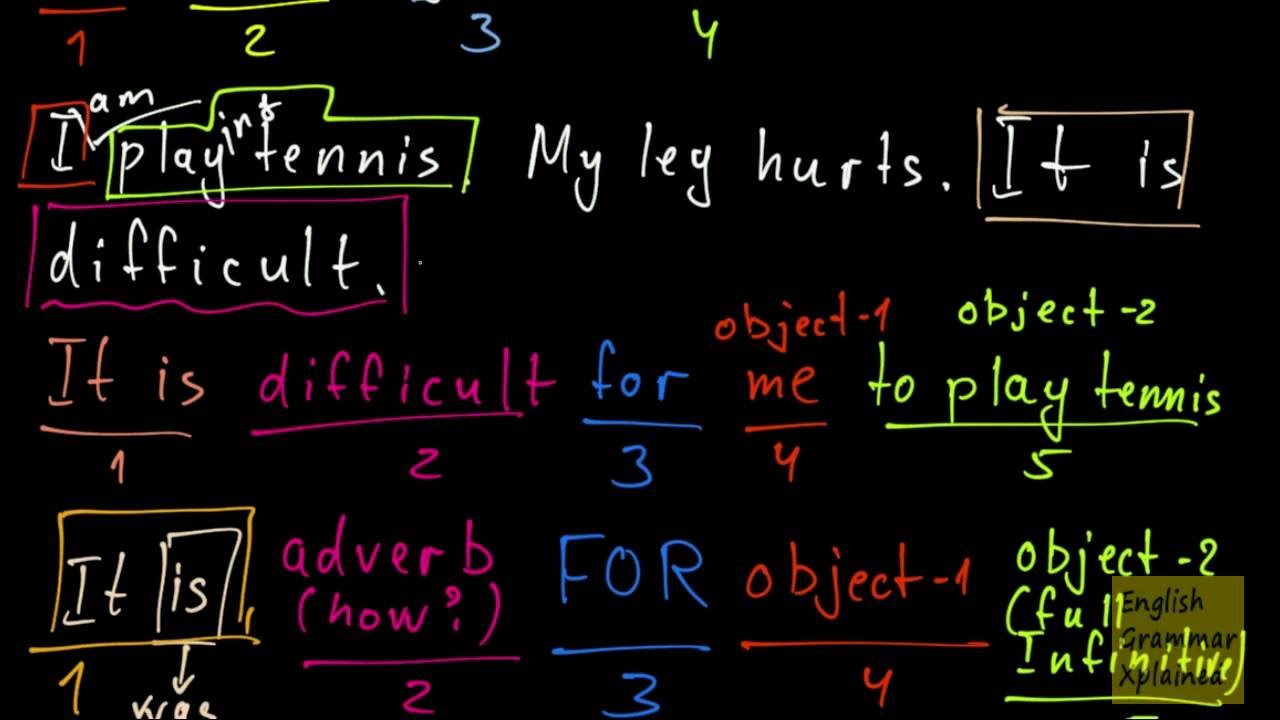 1 2 3 4
am
I playing tennis My leg hurts. It is
difficult.
object-1 object-2
It is difficult for me to play tennis
1 2 3 4 5
It is adverb FOR object-1 object-2
(how?) (full
Infinitive)
1 2 3 4
English
Grammar
Xplained